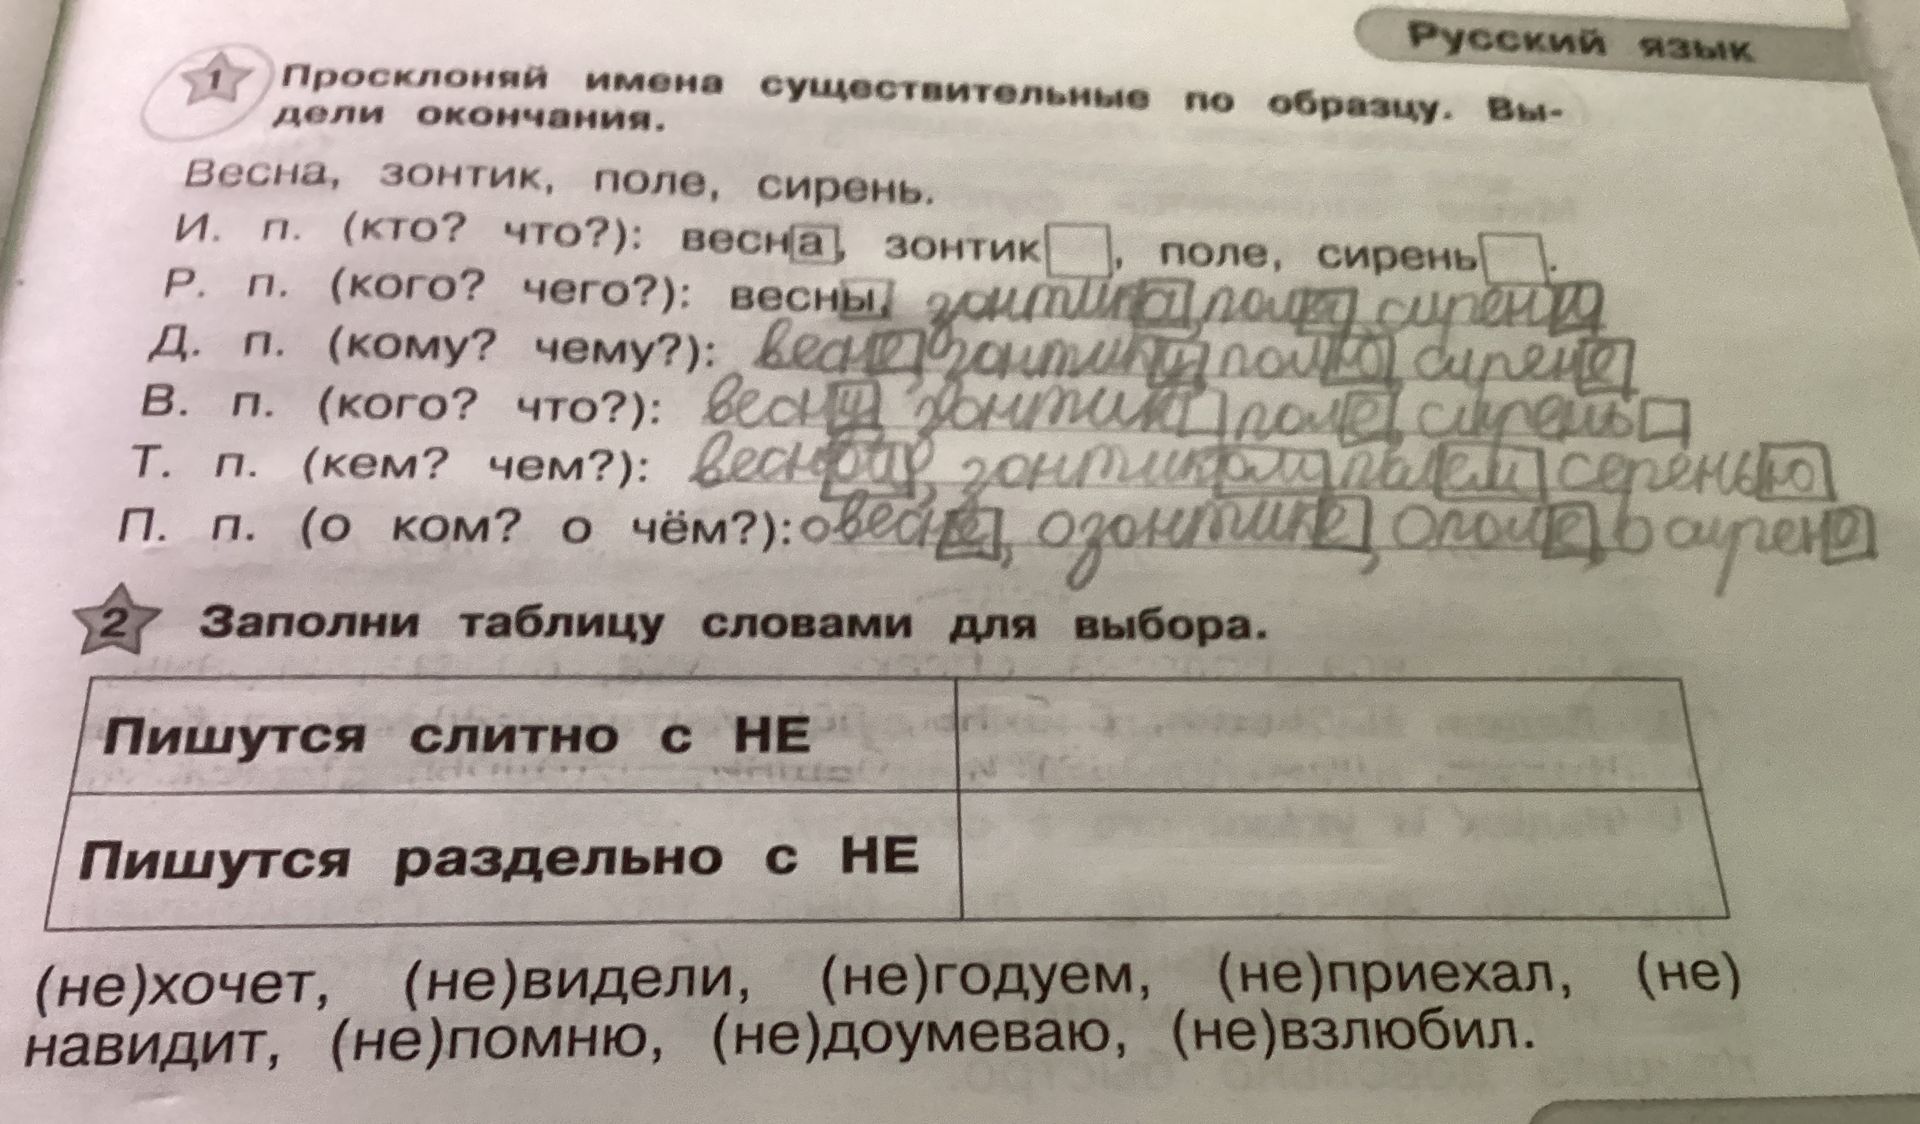 Русский язык
1 Просклоняй имена существительные по образцу. Вы-
дели окончания.
Весна, зонтик, поле, сирень.
И. п. (кто? что?): весна, зонтик , поле, сирень .
Р. п. (кого? чего?): весны, зонтика, поля, сирени
Д. п. (кому? чему?): весне, зонтику, полю, сирене
В. п. (кого? что?): весну, зонтик , поле, сирень
Т. п. (кем? чем?): весной, зонтиком, полем, серенью
П. п. (о ком? о чём?): о весне, о зонтике, о поле, о сирене
2 Заполни таблицу словами для выбора.
Пишутся слитно с НЕ
Пишутся раздельно с НЕ
(не)хочет, (не)видели, (не)годуем, (не)приехал, (не)
навидит, (не)помню, (не)доумеваю, (не)взлюбил.